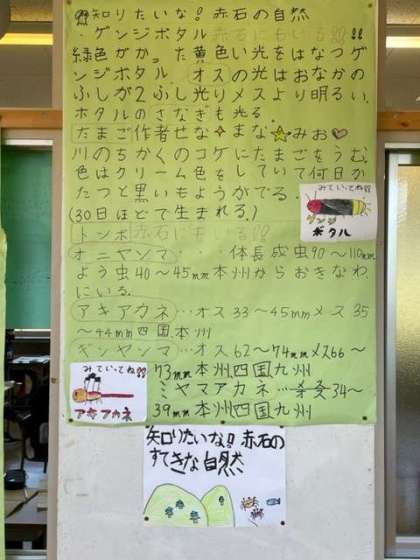 知りたいな!赤石の自然
ゲンジボタル 赤石にもいる!!
緑色がかった黄色い光をはなつゲ
ンジボタル、オスの光はおなかの
ふしが2ふし光りメスより明るい。
ホタルのさなぎも光る。
たまご作者せな☆まな☆みお♡
川のちかくのコケにたまごをうむ。
色はクリーム色をしていて何日か
たつと黒いもようがでる。
(30日ほどで生まれる。)
みていてね!!
ゲンジ
ボタル
トンボ赤石にもいる!!
オニヤンマ 体長成虫90〜110mm
よう虫40〜45mm本州からおきなわ
にいる。
アキアカネ…オス33〜45mmメス35
〜44mm四国本州
ギンヤンマ…オス62〜74mmメス66〜
73mm本州四国九州
ミヤマアカネ…34〜
39mm本州四国九州
みていてね!!
アキアカネ
知りたいな!赤石の
すてきな自然